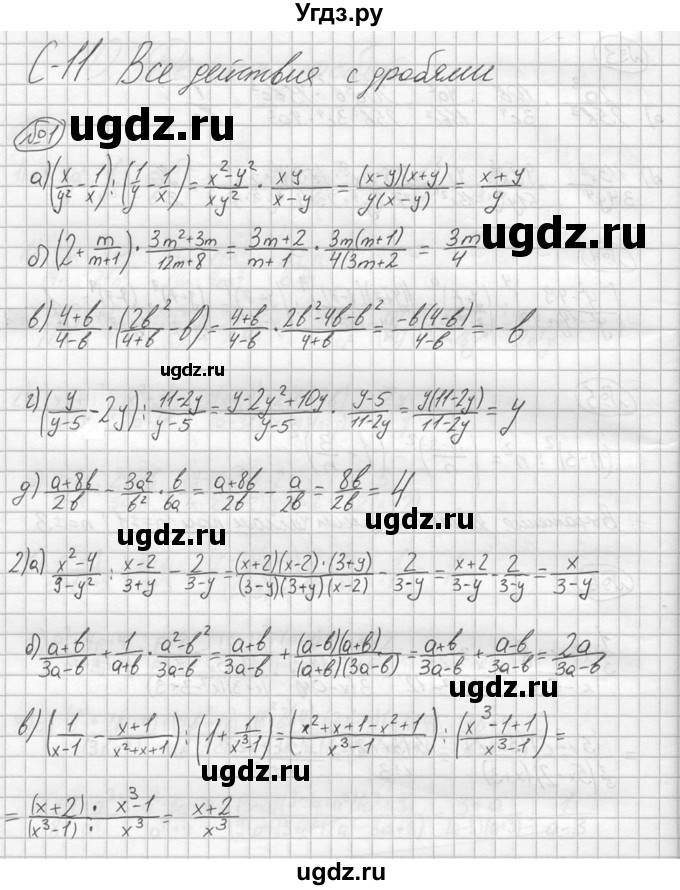 Угдз.ру
С-11 Все действия с дробями
№1 ugdz.ru
а) (x/y² - 1/x) : (1/y - 1/x) = (x²-y²)/(xy²) · xy/(x-y) = (x-y)(x+y)/(y(x-y)) = (x+y)/y
б) (2 + m/(m+1)) · (3m²+3m)/(12m+8) = (3m+2)/(m+1) · 3m(m+1)/(4(3m+2 = 3m/4
ugdz.ru
в) (4+b)/(4-b) · (2b²/(4+b) - b) = (4+b)/(4-b) · (2b²-4b-b²)/(4+b) = -b(4-b)/(4-b) = -b
ugdz.ru
г) (y/(y-5) - 2y) : (11-2y)/(y-5) = (y-2y²+10y)/(y-5) · (y-5)/(11-2y) = y(11-2y)/(11-2y) = y
д) (a+8b)/2b - 3a²/b² · b/6a = (a+8b)/2b - a/2b = 8b/2b = 4
ugdz.ru
2) а) (x²-4)/(9-y²) : (x-2)/(3+y) - 2/(3-y) = (x+2)(x-2)·(3+y)/((3-y)(3+y)(x-2)) - 2/(3-y) = (x+2)/(3-y) - 2/(3-y) = x/(3-y)
б) (a+b)/(3a-b) + 1/(a+b) · (a²-b²)/(3a-b) = (a+b)/(3a-b) + (a-b)(a+b)/((a+b)(3a-b)) = (a+b)/(3a-b) + (a-b)/(3a-b) = 2a/(3a-b)
ugdz.ru
в) (1/(x-1) - (x+1)/(x²+x+1)) : (1 + 1/(x³-1)) = ((x²+x+1-x²+1)/(x³-1)) : ((x³-1+1)/(x³-1)) =
ugdz.ru
= (x+2)/(x³-1) · (x³-1)/x³ = (x+2)/x³
ugdz.ru
Угдз.ру